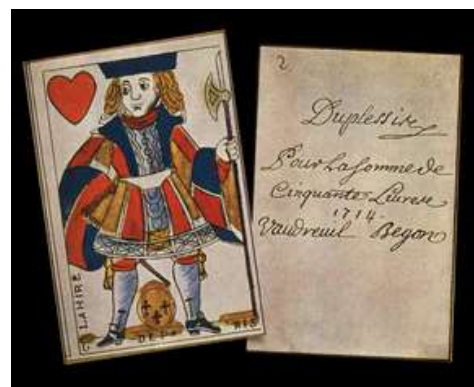 LAHIRE
2
Duplessis
Pour La somme de
Cinquantes Livres
1714.
Vaudreuil Begon